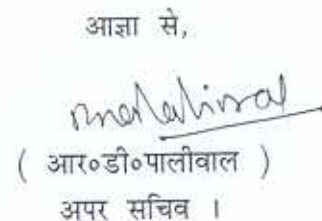 आज्ञा से,
( आर०डी०पालीवाल )
अपर सचिव ।